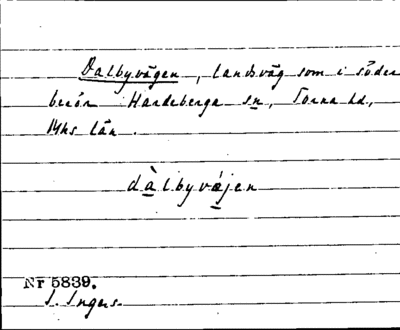 Dalbyvägen, landsväg som i söder
berör Hardeberga sn, Torna hd,
Mhs län.
dàlbyvæjen
Nr 5839.
I. Ingers.